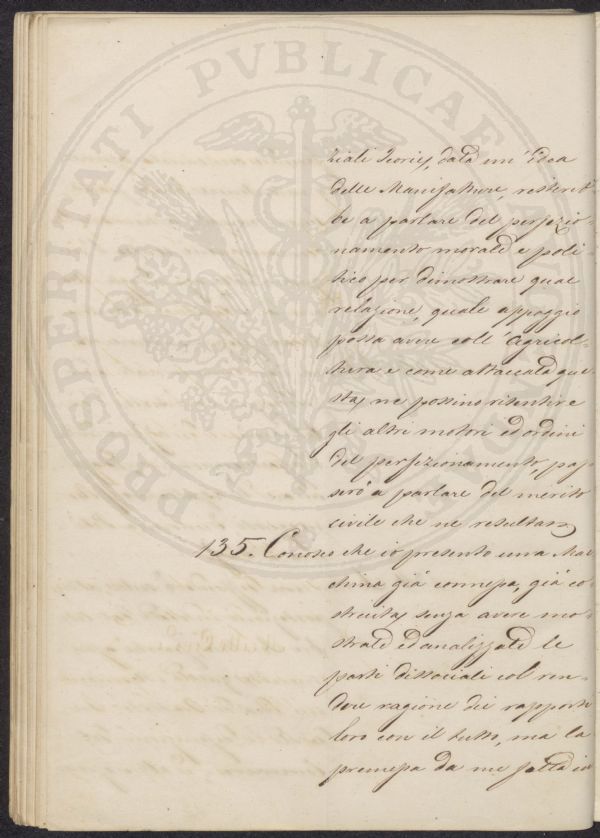 PROSPERITATI PVBLICAE AVGENDAE
ziali Teorie, data un' idea
delle Manifatture, restereb-
be a parlare del perfezio-
namento morale e poli-
tico per dimostrare qual
relazione, quale appoggio
possa avere coll' Agricol-
tura e come attaccata que-
sta, ne possino risentire
gli altri motori ed ordini
del perfezionamento, pas
serò a parlare del merito
civile che ne resulta
135. Conosco che io presento una Mac
china già connessa, già co-
struita, senza avere mo-
strate ed analizzate le
parti dissociali col ren-
dere ragione dei rapporti
loro con il tutto, ma la
premessa da me fatta in